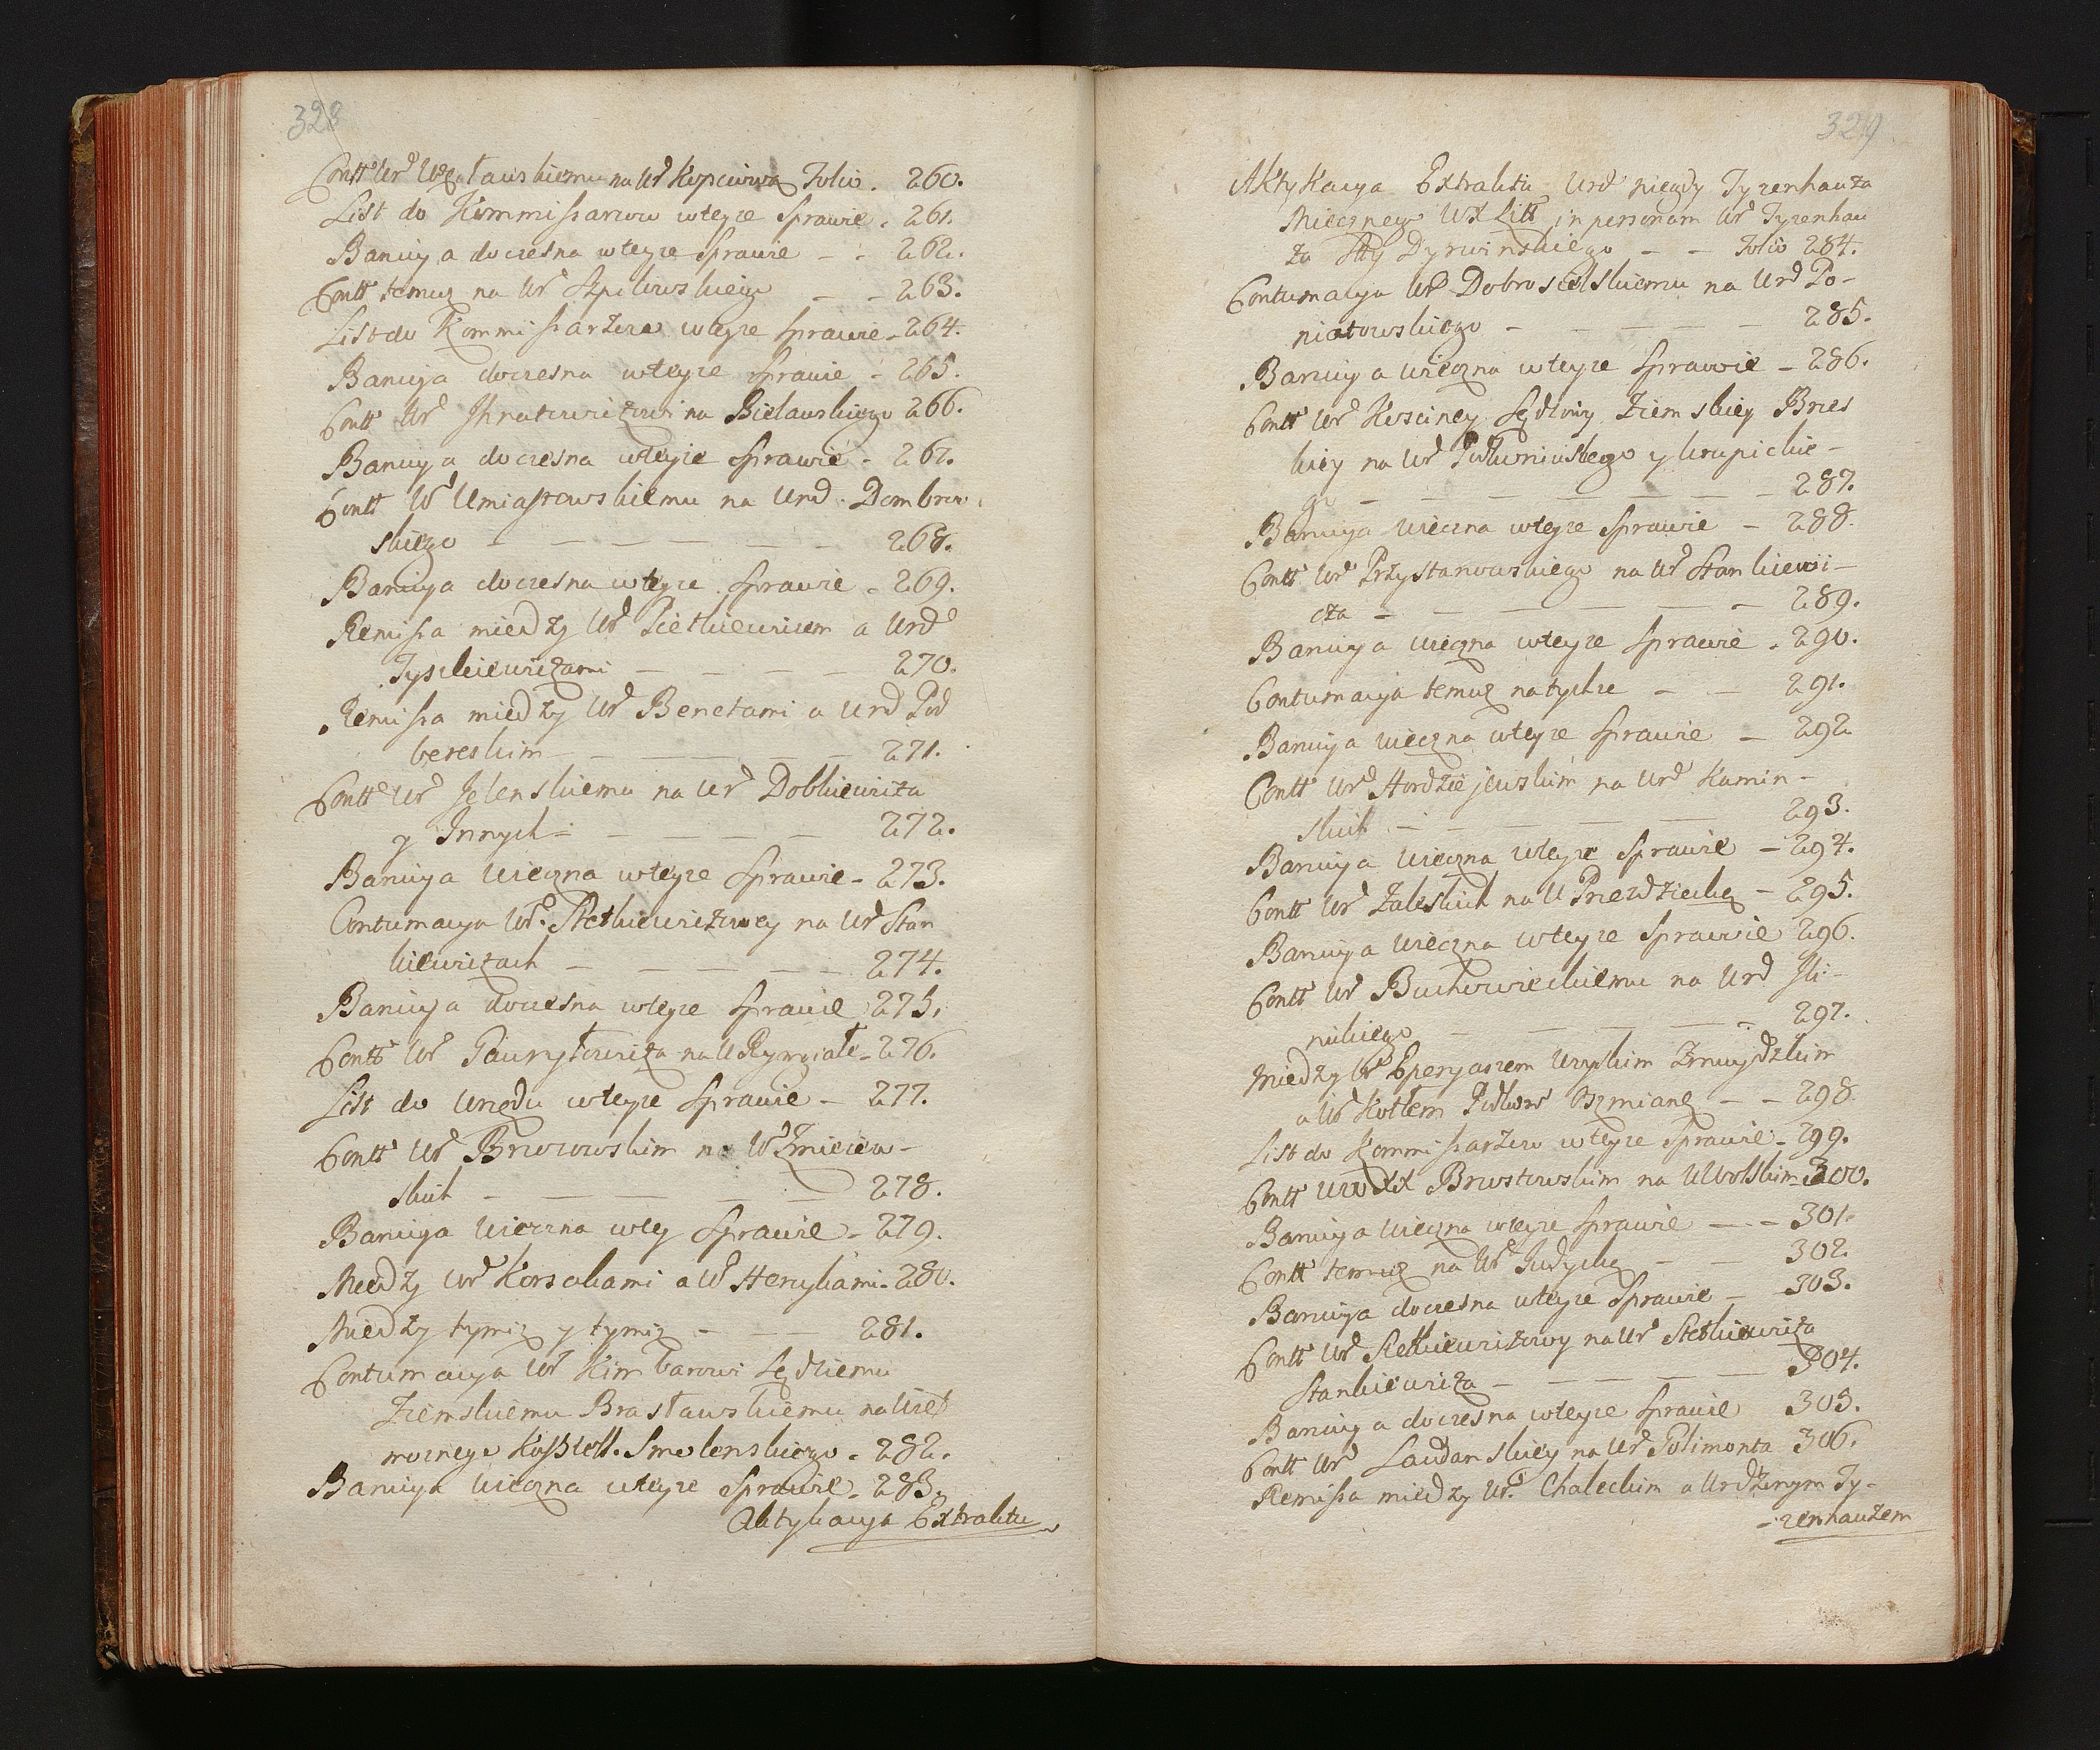 328
Contt Ur Wołatauskiemu na Ur Kopciową Folio. 260.
List do Kommissarzow wteyze Sprawie. 261.
Banicya doczesna wteyze Sprawie - - 262.
Contt temuz na Ur Szpilowskiego - - 263.
List do Kommissarzew wteyze Sprawie - 264.
Banicya doczesna wteyze Sprawie - 265.
Contt Ur Ihnatowiczowi na Bielauskiego 266.
Banicya doczesna wteyze Sprawie - 267.
Contt Ur Umiastowskiemu na Urod. Dombrow
skiego - - - - - - 268.
Banicya doczesna wteyze Sprawie - 269.
Remissa miedzy Ur Pietkiewiczem a Urod
Tyszkiewiczami - - - - 270.
Remissa miedzy Ur Benetami a Urod Pod
bereskim - - - - 271.
Contt Ur Jelenskiemu na Ur Dobkiewicza
y Innych - - - - - 272.
Banicya wieczna wteyze Sprawie - 273.
Contumacya Ur. Stetkiewiczowey na Ur Stan
kiewiczach - - - - - 274.
Banicya doczesna wteyze Sprawie 275.
Contt Ur Gawryłowicza na U Rymgiałe - 276.
List do Urzędu wteyze Sprawie - 277.
Contt Ur Brzozowskim na Ur Zmiciew-
skich - - - - 278.
Banicya wieczna wtey Sprawie - 279.
Miedzy Ur Korsakami a Ur Henrykami - 280.
Miedzy tymiz y tymiz - - 281.
Contumacya Ur Kimbarowi Sędziemu
Ziemskiemu Brasławskiemu na Wiel
moznego Kasztell. Smolenskiego - 282.
Banicya wieczna wteyze Sprawie - 283.
Aktykacya Extraktu
329
Aktykacya Extraktu Urod niegdy Tyzenhauza
Miecznego WXLitt in personam Ur Tyzenhau
za Stty Dyrwinskiego - - Folio 284.
Contumacya Ur Dobrosielskiemu na Urod Po-
niatowskiego - - - - - 285.
Banicya wieczna wteyze Sprawie - 286.
Contt Ur Kosciney Sędziny Ziemskiey Brzes
kiey na Ur Putkowniuskiego y Krupickie-
go - - - - - - - 287.
Banicya wieczna wteyze Sprawie - 288.
Contt Ur Przystanowskiego na Ur Stankiewi-
cza - - - - - - 289.
Banicya wieczna wteyze Sprawie - 290.
Contumacya temuz na tychze - - 291.
Banicya wieczna wteyze Sprawie - 292
Contt Ur Hordziejewskim na Ur Kamin-
skich - - - - - 293.
Banicya wieczna wteyze Sprawie - 294.
Contt Ur Zaleskich na U Przezdzieckę - 295.
Banicya wieczna wteyze Sprawie 296.
Contt Ur Buchowieckiemu na Urod Jli-
nickiego - - - - - 297.
Miedzy Ur Eperyaszem Woyskim Zmuydzkim
a Ur Kotłem Podkom Oszmianę - - 298.
List do Kommissarzew wteyze Sprawie - 299.
Contt UrodXX Brzostowskim na U Wolskim 300.
Banicya wieczna wteyze Sprawie - - 301.
Contt temuz na Ur Judyckę - - 302.
Banicya doczesna wteyze Sprawie - 303.
Contt Ur Stetkiewiczowy na Ur Stetkiewicza
Stankiewicza - - - - - 304.
Banicya doczesna wteyze Sprawie 305.
Contt Ur Laudanskiey na Ur Polimonta 306.
Remissa miedzy Ur. Chaleckim a Urodzonym Ty-
-zenhauzem